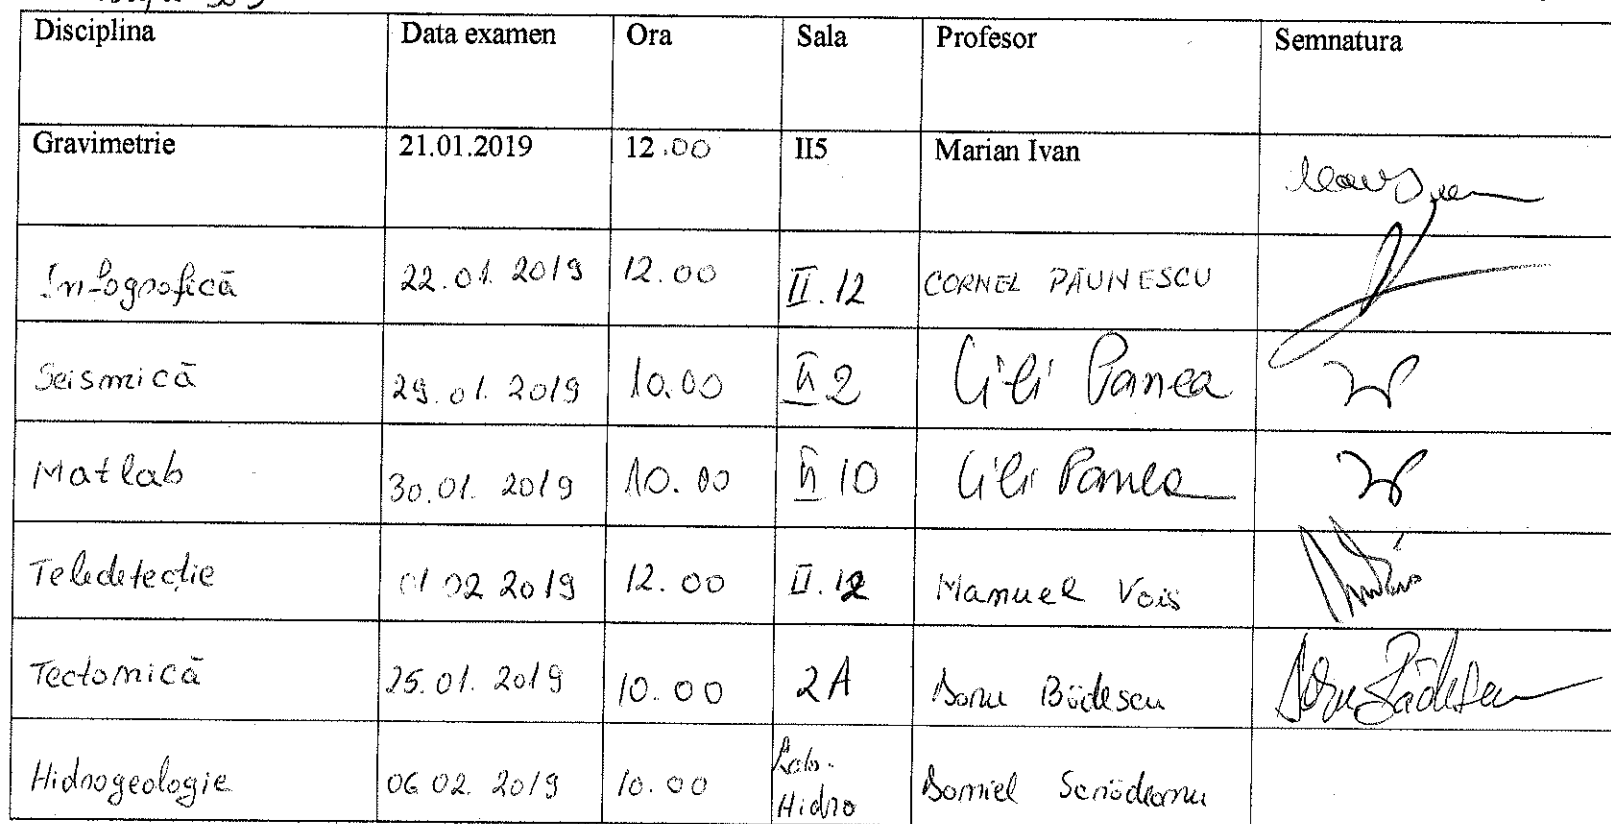 Disciplina Data examen Ora Sala Profesor Semnatura
Gravimetrie 21.01.2019 12.00 II5 Marian Ivan
Infografică 22.01.2019 12.00 II.12 CORNEL PĂUNESCU
Seismică 29.01.2019 10.00 II 2 Lili Panea
Matlab 30.01.2019 10.00 II 10 Lili Panea
Teledetecție 01 02 2019 12.00 II.12 Manuel Vais
Tectonică 25.01.2019 10.00 2A Doru Bădescu
Hidrogeologie 06 02. 2019 10.00 Lab. Hidro Daniel Scrădeanu